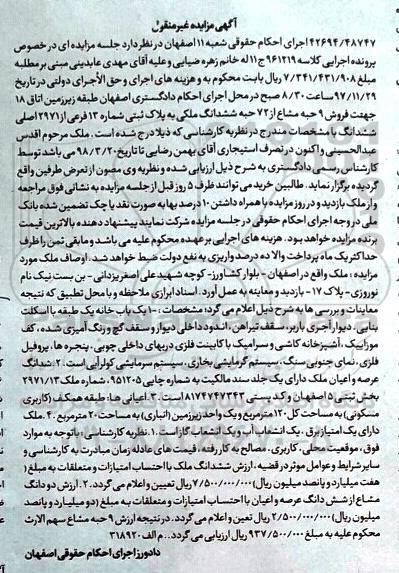 آگهی مزایده غیرمنقول
۴۲۶۹۴/۴۸۷۴۷ اجرای احکام حقوقی شعبه ۱۱ اصفهان در نظر دارد جلسه مزایده ای در خصوص
پرونده اجرایی کلاسه ۹۶۱۲۱۹ ج۱۱ له خانم زهره ضیایی و علیه آقای مهدی عابدینی مبنی بر مطالبه
مبلغ ۷/۳۴۱/۴۳۱/۹۰۸ ریال بابت محکوم به و هزینه های اجرای و حق الأجرای دولتی در تاریخ
۹۷/۱۱/۲۹ ساعت ۸/۳۰ صبح در محل اجرای احکام دادگستری اصفهان طبقه زیرزمین اتاق ۱۸
جهت فروش ۹ حبه مشاع از ۷۲ حبه ششدانگ ملکی به پلاک ثبتی شماره ۱۳ فرعی از ۲۹۷۱ اصلی
ششدانگ با مشخصات مندرج در نظریه کارشناسی که ذیلا درج شده است. ملک مرحوم اقدس
عبدالحسینی و اکنون در تصرف استیجاری آقای بهمن رضایی تا تاریخ ۹۸/۳/۲۰ می باشد توسط
کارشناس رسمی دادگستری به شرح ذیل ارزیابی شده و نظریه وی مصون از تعرض طرفین واقع
گردیده برگزار نماید. طالبین خرید می توانند ظرف ۵ روز قبل از جلسه مزایده به نشانی فوق مراجعه
و از ملک بازدید و در روز مزایده با همراه داشتن ۱۰ درصد بها به صورت نقد یا چک تضمین شده بانک
ملی در وجه اجرای احکام حقوقی در جلسه مزایده شرکت نمایند پیشنهاد دهنده بالاترین قیمت
برنده مزایده خواهد بود. هزینه های اجرایی بر عهده محکوم علیه می باشد و مابقی ثمن را ظرف
حداکثر یک ماه پرداخت والا ده درصد واریزی به نفع دولت ضبط خواهد شد. اوصاف ملک مورد
مزایده: ملک واقع در اصفهان - بلوار کشاورز - کوچه شهید علی اصغر یزدانی - بن بست نیک نام
نوروزی - پلاک ۱۷ - بازدید و معاینه به عمل آورد. اسناد ابرازی ملاحظه و با محل تطبیق که نتیجه
معاینات و بررسی ها به شرح ذیل اعلام می گردد: مشخصات: ۱- یک باب خانه یک طبقه با اسکلت
بنایی، دیوار آجری باربر، سقف تیرآهن، اندود داخلی دیوار و سقف گچ و رنگ آمیزی شده، کف
موزاییک، آشپزخانه کاشی و سرامیک با کابینت فلزی دربهای داخلی چوبی، پنجره ها، پروفیل
فلزی، نمای جنوبی سنگ، سیستم گرمایشی بخاری، سیستم سرمایشی کولر آبی است. ۲. شدانگ
عرصه و اعیان ملک دارای یک جلد سند مالکیت به شماره چاپی ۹۵۱۲۰۵، شماره ملک ۲۹۷۱/۱۳
بخش ثبتی ۵ اصفهان و کد پستی ۸۱۷۴۷۴۷۳۴۳ است. ۳. اعیانی ها: طبقه همکف (کاربری
مسکونی) به مساحت کل ۱۲۰ مترمربع و یک واحد زیرزمین (انباری) به مساحت ۲۰ مترمربع. ۴. ملک
دارای یک امتیاز برق، یک انشعاب آب و یک انشعاب گاز است. ۱. نظریه کارشناسی: باتوجه به موارد
فوق، موقعیت محلی، کاربری، مصالح به کار رفته، قیمت های عادله زمان مبادرت به کارشناسی و
سایر شرایط و عوامل موثر در قضیه، ارزش ششدانگ ملک با احتساب امتیازات و متعلقات به مبلغ (
هفت میلیارد و پانصد میلیون ریال) ۷/۵۰۰/۰۰۰/۰۰۰ ریال تعیین و اعلام می گردد. ۲. ارزش دو دانگ
مشاع از شش دانگ عرصه و اعیان با احتساب امتیازات و متعلقات به مبلغ (دو میلیارد و پانصد
میلیون ریال) ۲/۵۰۰/۰۰۰/۰۰۰ ریال تعین و اعلام می گردد. در نتیجه ارزش ۹ حبه مشاع سهم الارث
محکوم علیه به مبلغ ۹۳۷/۵۰۰/۰۰۰ ریال ارزیابی می گردد. .م الف ۳۱۸۹۲۰
دادورز اجرای احکام حقوقی اصفهان